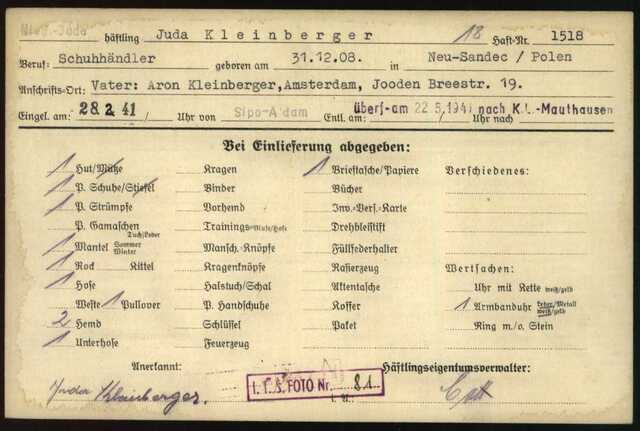 Niedl.-Jude
Häftling Juda Kleinberger 18 Haft-Nr. 1518
Beruf: Schuhhändler geboren am 31.12.08. in Neu-Sandec / Polen
Anschrifts-Ort: Vater: Aron Kleinberger, Amsterdam, Jooden Breestr. 19.
Eingel. am: 28.2.41 / Uhr von Sipo-A'dam Entl. am: überf.am 22.5.1941 nach K.L.-Mauthausen Uhr nach
Bei Einlieferung abgegeben:
1 Hut/Mütze Kragen 1 Brieftasche/Papiere Verschiedenes:
1 P. Schuhe/Stiefel Binder Bücher
1 P. Strümpfe Vorhemd Inv.-Vers.-Karte
P. Gamaschen Tuch/Leder Trainings-Bluse/Hose Drehbleistift
1 Mantel Sommer Winter Mansch.-Knöpfe Füllfederhalter
1 Rock Kittel Kragenknöpfe Rasierzeug Wertsachen:
1 Hose Halstuch/Schal Aktentasche Uhr mit Kette weiß/gelb
Weste 1 Pullover P. Handschuhe Koffer 1 Armbanduhr Leder/Metall weiß/gelb
2 Hemd Schlüssel Paket Ring m./o. Stein
1 Unterhose Feuerzeug
Anerkannt: Häftlingseigentumsverwalter:
I.T.S. FOTO Nr. 81
Juda Kleinberger.